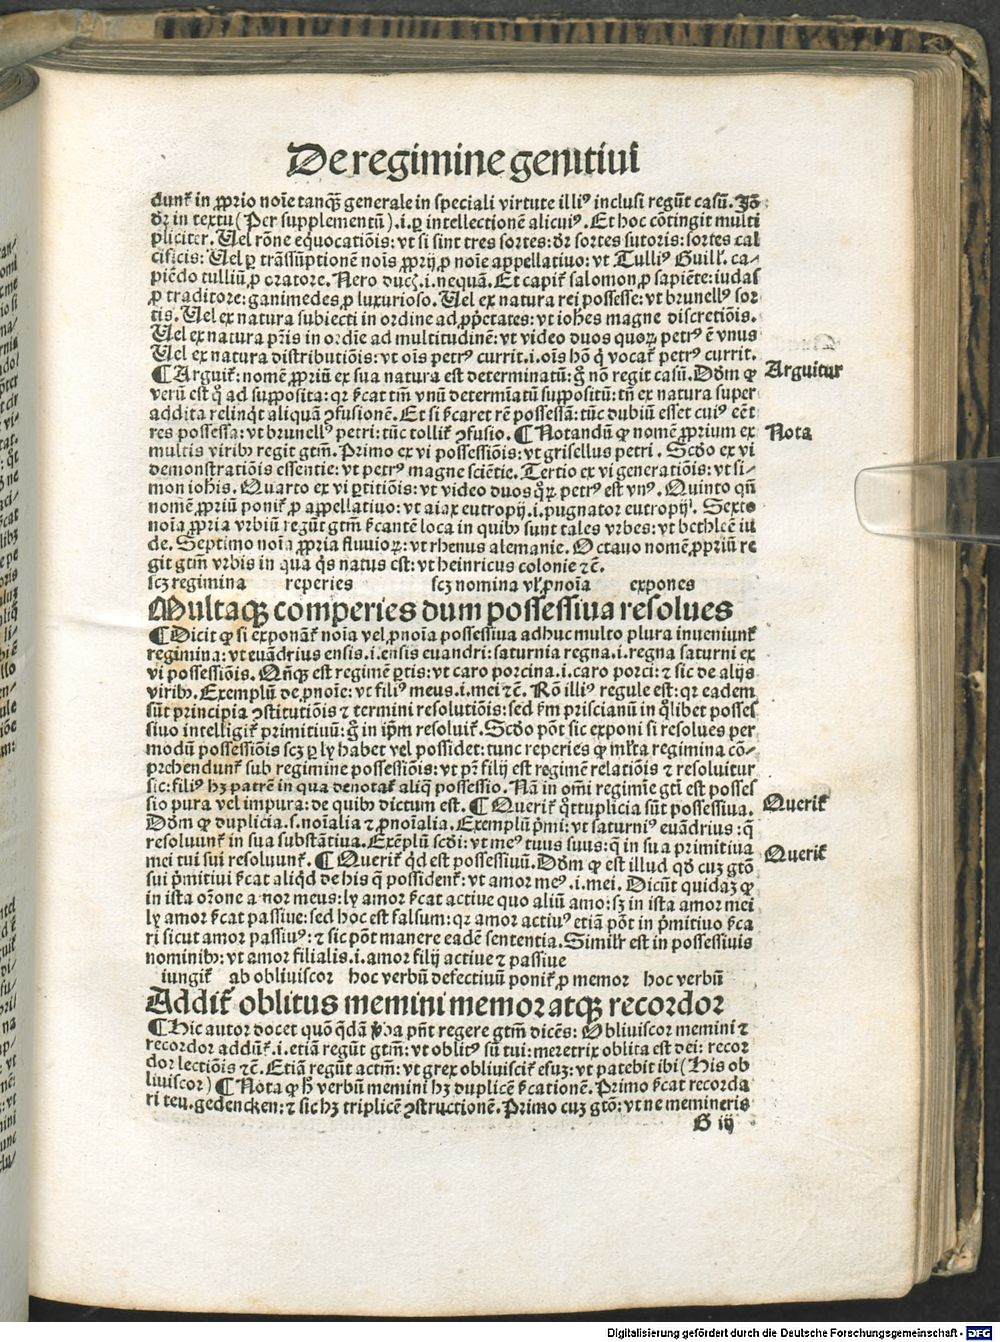 De regimine genitiui
dunt᷑ in ꝓprio noı̄e tanqȝ generale in speciali virtute illiꝰ inclusi regūt casū. Jō
dr̄ in textu (Per supplementū).i.ꝑ intellectionē alicuiꝰ. Et hoc cōtingit multi
pliciter. Uel rōne equocatiōis: vt si sint tres sortes: dr̄ sortes sutoris: sortes cal
cificis: Uel ꝑ trāssūptionē noı̄s ꝓprij ꝓ noı̄e appellatiuo: vt Tulliꝰ Guill. ca⸗
piēdo tulliū ꝓ oratore. Nero ducꝭ.i.nequā. Et capit᷑ salomon ꝓ sapiēte: iudas
ꝓ traditore: ganimedes ꝓ luxurioso. Uel ex natura rei possesse: vt brunellꝰ sor
tis. Uel ex natura subiecti in ordine ad ꝓp̄etates: vt ioh̄es magne discretiōis.
Uel ex natura pr̄is in ordīe ad multitudinē: vt video duos quoꝝ petrꝰ ē vnus
Uel ex natura distributiōis: vt oı̄s petrꝰ currit.i.oı̄s hō q̄ vocat᷑ petrꝰ currit.
¶ Arguit᷑: nomē ꝓpriū ex sua natura est determinatū: g̊ nō regit casū. Dōm ꝙ
verū est q̊ ad supposita: qr̄ ſcat tm̄ vnū determiatū suppositū: tn̄ ex natura super
addita relinqt᷑ aliquā ↄfusionē. Et si ſcaret rē possessā: tūc dubiū esset cuiꝰ eēt
res possessa: vt brunellꝰ petri: tūc tollit᷑ ↄfusio. ¶ Notandū ꝙ nomē ꝓprium ex
multis viribꝰ regit gtm̄. Primo ex vi possessiōis: vt grisellus petri. Scd̄o ex vi
demonstratiōis essentie: vt petrꝰ magne sciētie. Tertio ex vi generatiōis: vt si⸗
mon ioh̄is. Quarto ex vi ꝑtitiōis: vt video duos qꝝ petrꝰ est vnꝰ. Quinto qn̄
nomē ꝓpriū ponit᷑ ꝓ appellatiuo: vt aiax eutropij.i.pugnator eutropij. Sexto
noı̄a ꝓpria vrbiū regūt gtm̄ ſcantē loca in quibꝰ sunt tales vrbes: vt bethleē iu
de. Septimo noı̄a ꝓpria fluuioꝝ: vt rhenus alemanie. Octauo nomē ꝓpriū re
git gtm̄ vrbis in qua qs natus est: vt heinricus colonie ⁊c̄.
scꝫ regimina reperies scꝫ nomina vl̓ ꝓnoı̄a expones
Multaqꝫ comperies dum possessiua resolues
¶ Dicit ꝙ si exponāt᷑ noı̄a vel ꝓnoı̄a possessiua adhuc multo plura inueniunt᷑
regimina: vt euādrius ensis.i.ensis euandri: saturnia regna.i.regna saturni ex
vi possessiōis. Qn̄qꝫ est regimē ꝑtis: vt caro porcina.i.caro porci: ⁊ sic de alijs
viribꝰ. Exemplū de ꝓnoı̄e: vt filiꝰ meus.i.mei ⁊c̄. Rō illiꝰ regule est: qr̄ eadem
sūt principia ↄstitutiōis ⁊ termini resolutiōis: sed ſm priscianū in qͥlibet posses
siuo intelligit᷑ primitiuū: g̊ in ip̄m resoluit᷑. Scd̄o pōt sic exponi si resolues per
modū possessiōis scꝫ ꝑ ly habet vel possidet: tunc reperies ꝙ ml̓ta regimina cō⸗
prehendunt᷑ sub regimine possessiōis: vt pr̄ filij est regimē relatiōis ⁊ resoluitur
sic: filiꝰ hꝫ patrē in qua denotat᷑ aliq̄ possessio. Nā in omı̄ regimīe gtī est posses
sio pura vel impura: de quibꝰ dictum est. ¶ Querit᷑ qͦttuplicia sūt possessiua.
Dōm ꝙ duplicia.s.noı̄alia ⁊ ꝓnoı̄alia. Exemplū pͥmi: vt saturniꝰ euādrius: q̄
resoluunt᷑ in sua substātiua. Exēplū scd̄i: vt meꝰ tuus suus: q̄ in sua primitiua
mei tui sui resoluunt᷑. ¶ Querit᷑ qͥd est possessiuū. Dōm ꝙ est illud qd̄ cuꝫ gtō
sui pͥmitiui ſcat aliqͥd de his q̄ possident᷑: vt amor meꝰ.i.mei. Dicūt quidaꝫ ꝙ
in ista or̄one amor meus: ly amor ſcat actiue quo aliū amo: sꝫ in ista amor mei
ly amor ſcat passiue: sed hoc est falsum: qr̄ amor actiuꝰ etiā pōt in pͥmitiuo ſca
ri sicut amor passiuꝰ: ⁊ sic pōt manere eadē sententia. Silr̄ est in possessiuis
nominibꝰ: vt amor filialis.i.amor filij actiue ⁊ passiue
iungit᷑ ab obliuiscor hoc verbū defectiuū ponit᷑ ꝓ memor hoc verbū
Addit᷑ oblitus memini memor atqꝫ recordor
¶ Hic autor docet quō qdā v̓ba pn̄t regere gtm̄ dicēs: Obliuiscor memini ⁊
recordor addūt᷑.i.etiā regūt gtm̄: vt oblitꝰ sū tui: meretrix oblita est dei: recor
dor lectiōis ⁊c̄. Etiā regūt actm̄: vt grex obliuiscit᷑ esuꝫ: vt patebit ibi (His ob
liuiscor) ¶ Nota ꝙ h̄ verbū memini hꝫ duplicē ſcationē. Primo ſcat recorda
ri teu. gedencken: ⁊ sic hꝫ triplicē ↄstructionē. Primo cuꝫ gtō: vt ne memineris
G iij
Arguitur
Nota
Querit᷑
Querit᷑
Digitalisierung gefördert durch die Deutsche Forschungsgemeinschaft - DFG